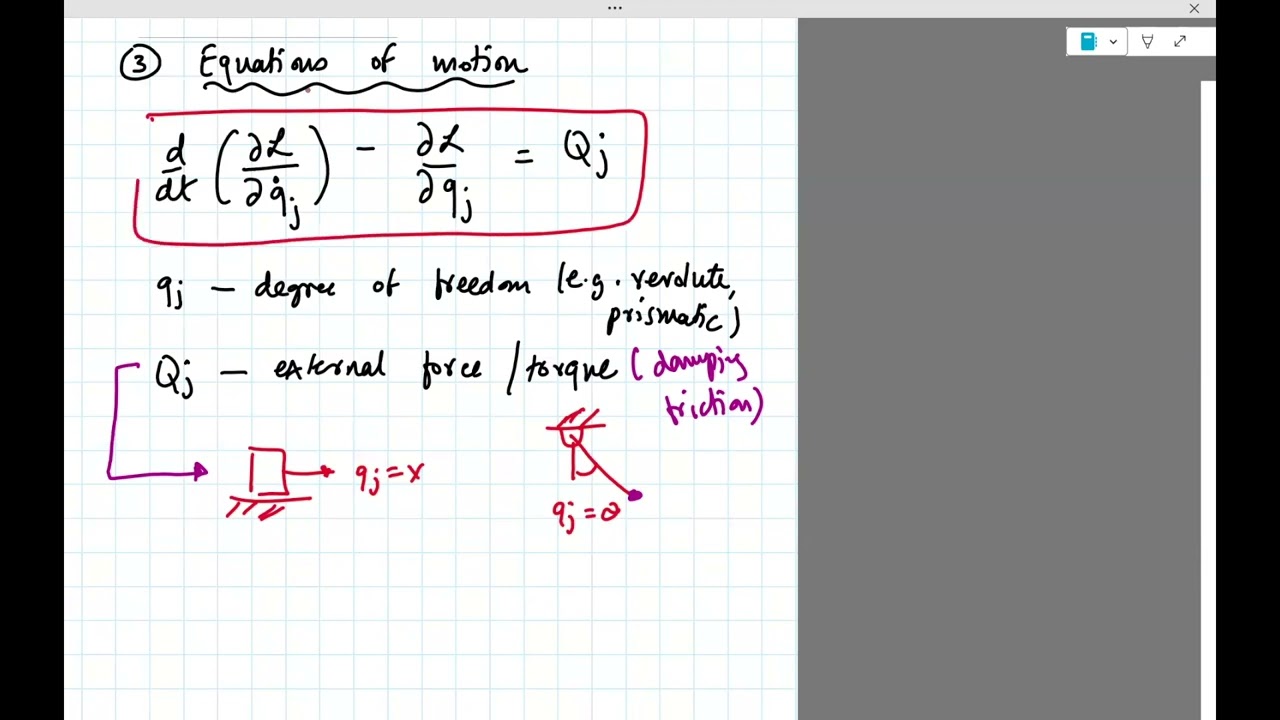 ③ Equations of motion
d/dt (∂ℒ/∂q̇j) − ∂ℒ/∂qj = Qj
qj – degree of freedom (e.g. revolute,
prismatic)
Qj – external force / torque (damping
friction)
qj = x
qj = θ